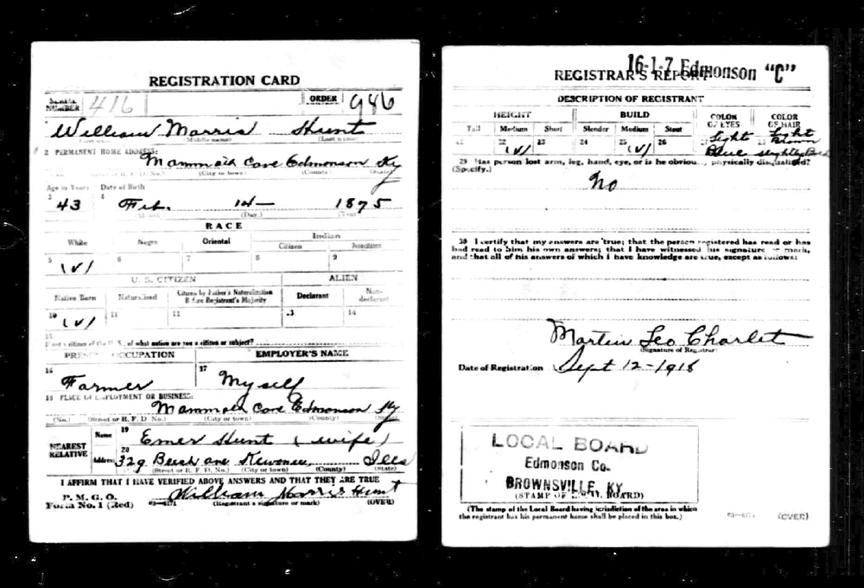 REGISTRATION CARD
SERIAL NUMBER 416 ORDER 946
William Morris Hunt
2 PERMANENT HOME ADDRESS:
Mammoth Cave Edmonson Ky
(City or town) (County)
Age in Years Date of Birth
3 43 4 Feb. 14 — 1875
(Day.) (Year)
RACE
White Negro Oriental Indian
Citizen Noncitizen
5 6 7 8 9
(√)
U. S. CITIZEN ALIEN
Native Born Naturalized Citizen by Father's Naturalization Before Registrant's Majority Declarant Non-declarant
10 (√) 11 13 14
15
If not a citizen of the U. S., of what nation are you a citizen or subject?
PRESENT OCCUPATION EMPLOYER'S NAME
16 Farmer 17 Myself
18 PLACE OF EMPLOYMENT OR BUSINESS:
Mammoth Cave Edmonson Ky
(No.) (Street or R. F. D. No.) (City or town) (County) (State)
NEAREST RELATIVE Name 19 Emer Hunt (wife)
Address 20 329 Beech ave Kewanee Ills
(Street or R. F. D. No.) (City or town) (County) (State)
I AFFIRM THAT I HAVE VERIFIED ABOVE ANSWERS AND THAT THEY ARE TRUE
P. M. G. O.
Form No. 1 (Red) William Morris Hunt
(Registrant's signature or mark) (OVER)
16-1-7 Edmonson "C"
REGISTRAR'S REPORT
DESCRIPTION OF REGISTRANT
HEIGHT BUILD COLOR OF EYES COLOR OF HAIR
Tall Medium Short Slender Medium Stout
21 22 (√) 23 24 25 (√) 26 Light Blue Light Brown slightly
29 Has person lost arm, leg, hand, eye, or is he obviously physically disqualified?
(Specify.)
No
30 I certify that my answers are true; that the person registered has read or has
had read to him his own answers; that I have witnessed his signature or mark,
and that all of his answers of which I have knowledge are true, except as follows:
Martin Leo Charlet
(Signature of Registrar)
Date of Registration Sept 12-1918
LOCAL BOARD
Edmonson Co.
BROWNSVILLE, KY.
(STAMP OF LOCAL BOARD)
(The stamp of the Local Board having jurisdiction of the area in which
the registrant has his permanent home shall be placed in this box.)
(OVER)